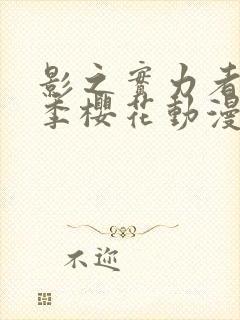 影之實力者
季櫻花動漫
不邇